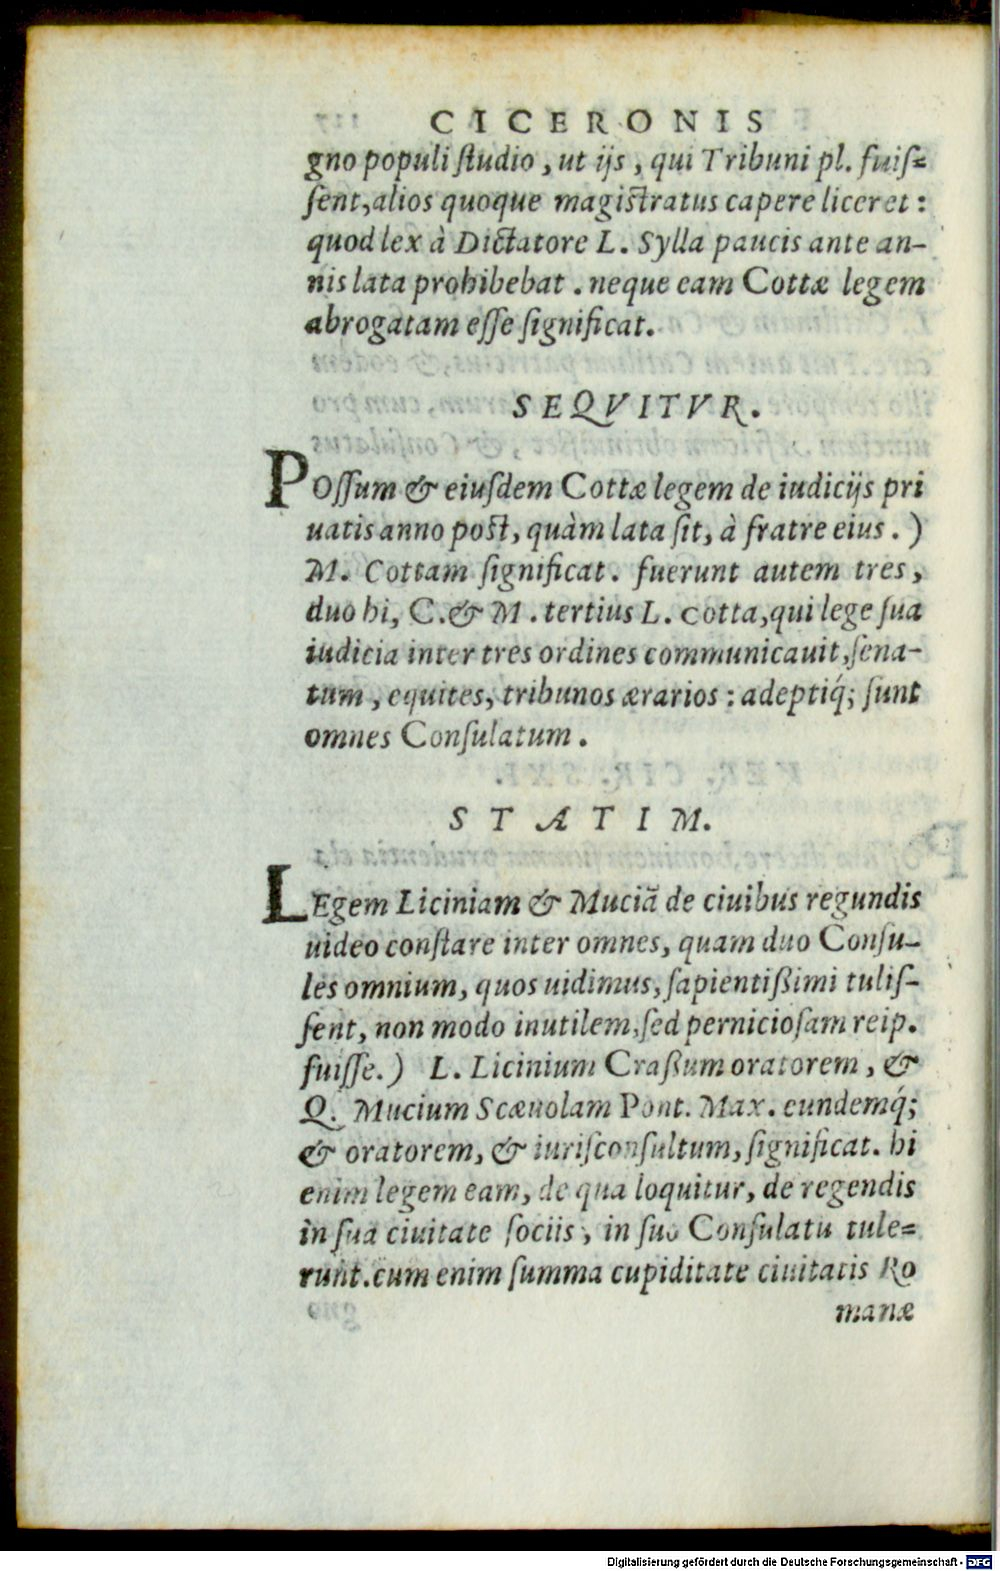 CICERONIS
gno populi ſtudio, ut ijs, qui Tribuni pl. fuiſ=
ſent, alios quoque magiſtratus capere liceret:
quod lex à Dictatore L. Sylla paucis ante an-
nis lata prohibebat. neque eam Cottæ legem
abrogatam eſſe ſignificat.
SEQVITVR.
POſſum & eiuſdem Cottæ legem de iudicijs pri
uatis anno poſt, quàm lata ſit, à fratre eius.)
M. Cottam ſignificat. fuerunt autem tres,
duo hi, C. & M. tertius L. Cotta, qui lege ſua
iudicia inter tres ordines communicauit, ſena-
tum, equites, tribunos ærarios: adeptiq́; ſunt
omnes Conſulatum.
STATIM.
LEgem Liciniam & Muciã de ciuibus regundis
uideo conſtare inter omnes, quam duo Conſu-
les omnium, quos uidimus, ſapientißimi tuliſ-
ſent, non modo inutilem, ſed pernicioſam reip.
fuiſſe.) L. Licinium Craßum oratorem, &
Q. Mucium Scæuolam Pont. Max. eundemq́;
& oratorem, & iuriſconſultum, ſignificat. hi
enim legem eam, de qua loquitur, de regendis
in ſua ciuitate ſociis, in ſuo Conſulatu tule=
runt. cum enim ſumma cupiditate ciuitatis Ro
manæ
Digitalisierung gefördert durch die Deutsche Forschungsgemeinschaft - DFG